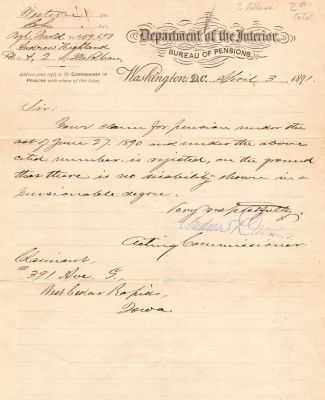 2 Rollers
Department of the Interior,
BUREAU OF PENSIONS,
Andrew Highland
Address your reply to the COMMISSIONER OF
PENSIONS with return of this letter.
Washington, D.C. April 3 1891.
Sir:
Your claim for pension under the
act of June 27, 1890 and under the above
cited number is rejected, on the ground
that there is no disability shown in a
pensionable degree.
Very respectfully,
Andrew
Acting Commissioner.
Claimant
# 391 Ave. F.
West Cedar Rapids,
Iowa